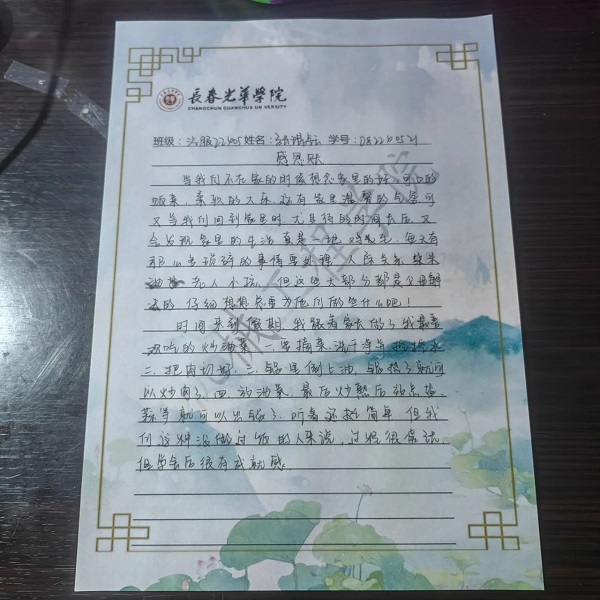 長春光華學院
CHANGCHUN GUANGHUA UNIVERSITY
班级：法服22405 姓名： 学号：0822240521
感恩饭
当我们不在家的时候想念家里的好，可口的
饭菜，柔软的大床，还有家里温馨的气氛，可
又当我们回到家里时，尤其待的时间长后，又
会发现家里的生活真是一地鸡毛，每天有
那么多琐碎的事情要处理，人际关系，柴米
油盐，老人小孩，但这些大部分都是父母解
决的，仔细想想总要为他们做些什么吧！
时间来到假期，我跟着家长做了我最喜
欢吃的炒油菜。一是摘菜洗干净
二、把肉切好，三、锅里倒上油，锅热了就可
以炒肉了，四、放油菜，最后炒熟后放点盐，
等就可以出锅了，听着还挺简单，但我
们这种没做过饭的人来说，过程很
但学会后很有成就感。